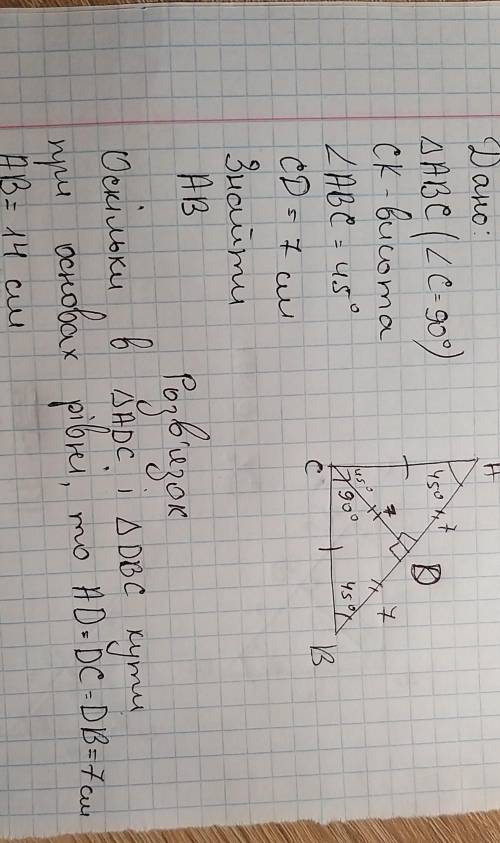 Дано:
△ABC (∠C=90°)
CK - висота
∠ABC = 45°
CD = 7 см
Знайти
AB
Розв'язок
Оскільки в △ADC і △DBC кути
при основах рівні, то AD=DC=DB=7см
AB = 14 см
A
45°
7
D
7
45°
7
C
90°
45°
B